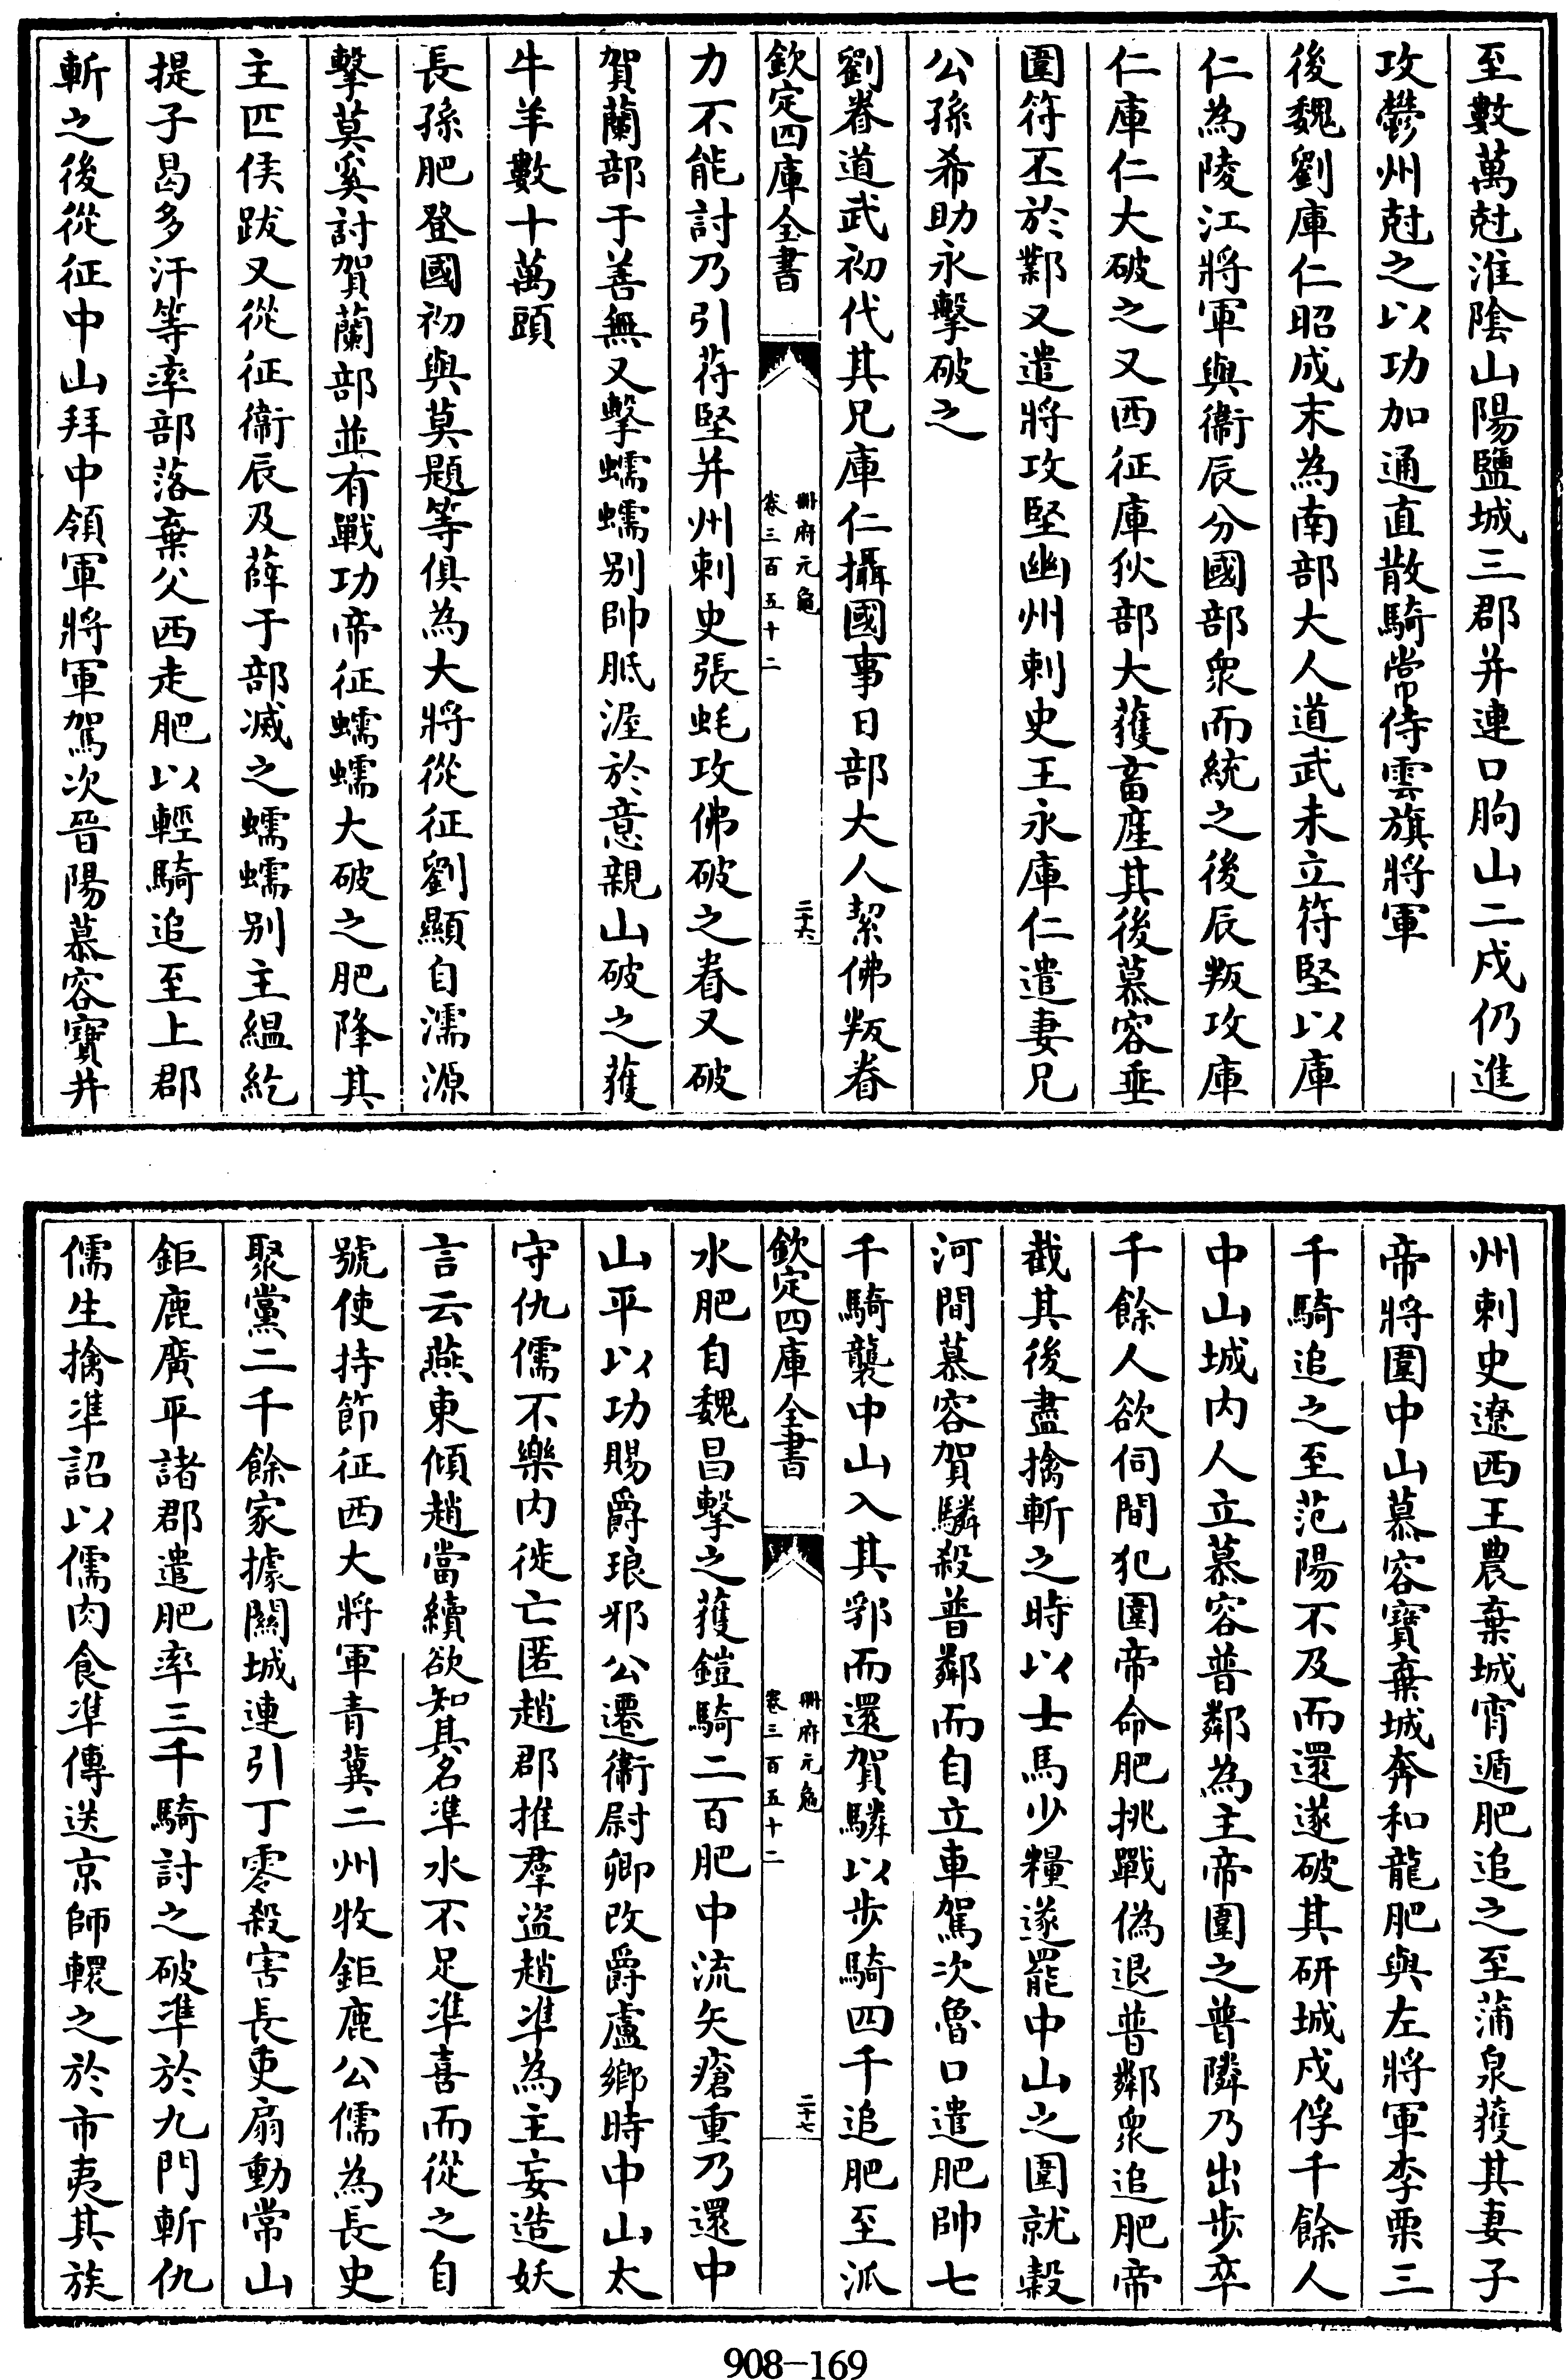 至數萬尅淮隂山陽鹽城三郡并連口朐山二戍仍進
攻鬱州尅之以功加通直散騎常侍雲旗將軍
後魏劉庫仁昭成末為南部大人道武未立符堅以庫
仁為陵江將軍與衞辰分國部衆而統之後辰叛攻庫
仁庫仁大破之又西征庫狄部大獲畜産其後慕容垂
圍符丕於鄴又遣將攻堅幽州刺史王永庫仁遣妻兄
公孫希助永擊破之
劉眷道武初代其兄庫仁攝國事日部大人絜佛叛眷
欽定四庫全書
冊府元龜
卷三百五十二
二十六
力不能討乃引苻堅并州刺史張蚝攻佛破之眷又破
賀蘭部于善無又擊蠕蠕别帥胝渥於意親山破之獲
牛羊數十萬頭
長孫肥登國初與莫題等俱為大將從征劉顯自濡源
擊莫奚討賀蘭部並有戰功帝征蠕蠕大破之肥降其
主匹侯跋又從征衞辰及薛于部滅之蠕蠕别主緼紇
提子曷多汗等率部落棄父西走肥以輕騎追至上郡
斬之後從征中山拜中領軍將軍駕次晉陽慕容寶并
州刺史遼西王農棄城宵遁肥追之至蒲泉獲其妻子
帝將圍中山慕容寶棄城奔和龍肥與左將軍李栗三
千騎追之至范陽不及而還遂破其研城戍俘千餘人
中山城内人立慕容普鄰為主帝圍之普隣乃出步卒
千餘人欲伺間犯圍帝命肥挑戰偽退普鄰衆追肥帝
截其後盡擒斬之時以士馬少糧遂罷中山之圍就榖
河間慕容賀驎殺普鄰而自立車駕次魯口遣肥帥七
千騎襲中山入其郛而還賀驎以步騎四千追肥至泒
欽定四庫全書
冊府元龜
卷三百五十二
二十七
水肥自魏昌擊之獲鎧騎二百肥中流矢瘡重乃還中
山平以功賜爵琅邪公遷衞尉卿改爵盧鄉時中山太
守仇儒不樂内徙亡匿趙郡推羣盜趙準為主妄造妖
言云燕東傾趙當續欲知其名準水不足準喜而從之自
號使持節征西大將軍青冀二州牧鉅鹿公儒為長史
聚黨二千餘家據關城連引丁零殺害長吏扇動常山
鉅鹿廣平諸郡遣肥率三千騎討之破準於九門斬仇
儒生擒準詔以儒肉食準傳送京師轘之於市夷其族
908-169